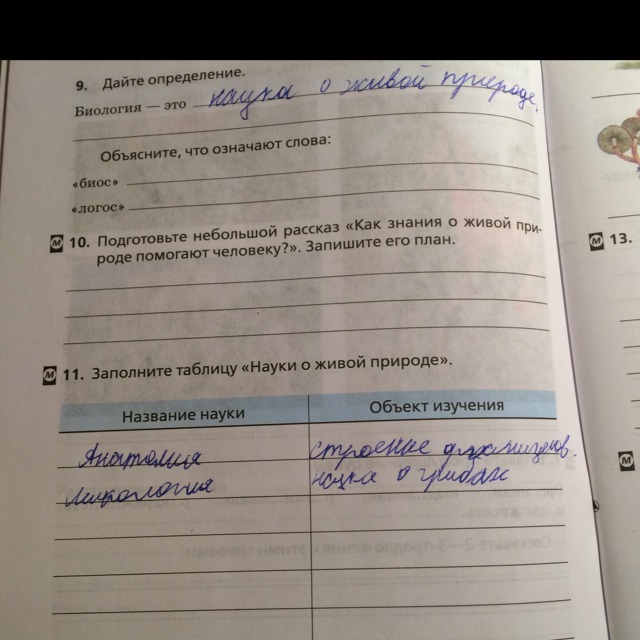 9. Дайте определение.
Биология — это наука о живой природе.
Объясните, что означают слова:
«биос»
«логос»
М 10. Подготовьте небольшой рассказ «Как знания о живой при-
роде помогают человеку?». Запишите его план.
М 13.
М 11. Заполните таблицу «Науки о живой природе».
Название науки Объект изучения
Анатомия строение организмов.
Микология наука о грибах
М